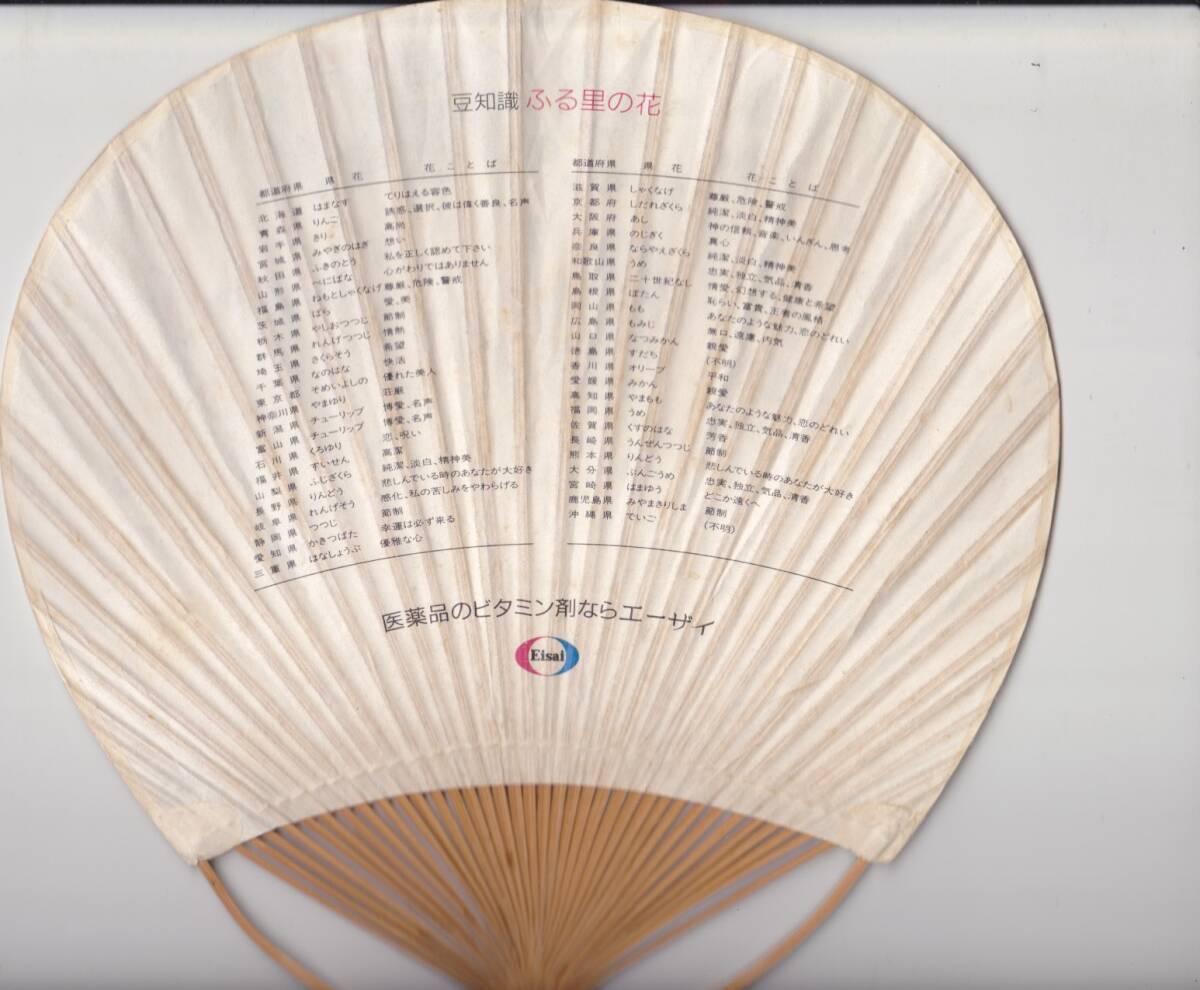 豆知識 ふる里の花
都道府県 県花 花ことば
北海道 はまなす てりはえる容色
青森県 りんご 誘惑、選択、彼は偉く善良、名声
岩手県 きり 高尚
宮城県 みやぎのはぎ 想い
秋田県 ふきのとう 私を正しく認めて下さい
山形県 べにばな 心がわりではありません
福島県 ねもとしゃくなげ 尊厳、危険、警戒
茨城県 ばら 愛、美
栃木県 やしおつつじ 節制
群馬県 れんげつつじ 情熱
埼玉県 さくらそう 希望
千葉県 なのはな 快活
東京都 そめいよしの 優れた美人
神奈川県 やまゆり 荘厳
新潟県 チューリップ 博愛、名声
富山県 チューリップ 博愛、名声
石川県 くろゆり 恋、呪い
福井県 すいせん 高潔
山梨県 ふじざくら 純潔、淡白、精神美
長野県 りんどう 悲しんでいる時のあなたが大好き
岐阜県 れんげそう 感化、私の苦しみをやわらげる
静岡県 つつじ 節制
愛知県 かきつばた 幸運は必ず来る
三重県 はなしょうぶ 優雅な心
都道府県 県花 花ことば
滋賀県 しゃくなげ 尊厳、危険、警戒
京都府 しだれざくら 純潔、淡白、精神美
大阪府 あし 神の信頼、音楽、いんぎん、思考
兵庫県 のじぎく 真心
奈良県 ならやえざくら 純潔、淡白、精神美
和歌山県 うめ 忠実、独立、気品、清香
鳥取県 二十世紀なし 情愛、幻想する、健康と希望
島根県 ぼたん 恥らい、富貴、王者の風格
岡山県 もも あなたのような魅力、恋のどれい
広島県 もみじ 無口、遠慮、内気
山口県 なつみかん 親愛
徳島県 すだち (不明)
香川県 オリーブ 平和
愛媛県 みかん 親愛
高知県 やまもも あなたのような魅力、恋のどれい
福岡県 うめ 忠実、独立、気品、清香
佐賀県 くすのはな 芳香
長崎県 うんぜんつつじ 節制
熊本県 りんどう 悲しんでいる時のあなたが大好き
大分県 ぶんごうめ 忠実、独立、気品、清香
宮崎県 はまゆう どこか遠くへ
鹿児島県 みやまきりしま 節制
沖縄県 でいご (不明)
医薬品のビタミン剤ならエーザイ
Eisai